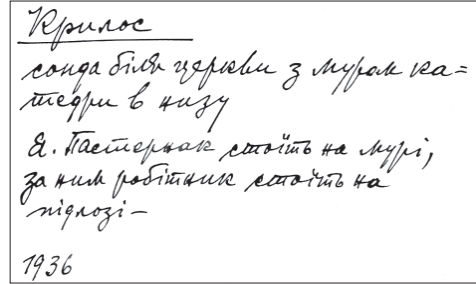 Крилос
сонда біля церкви з муром ка=
тедри в низу
Я. Пастернак стоїть на мурі,
за ним робітник стоїть на
підлозі –
1936